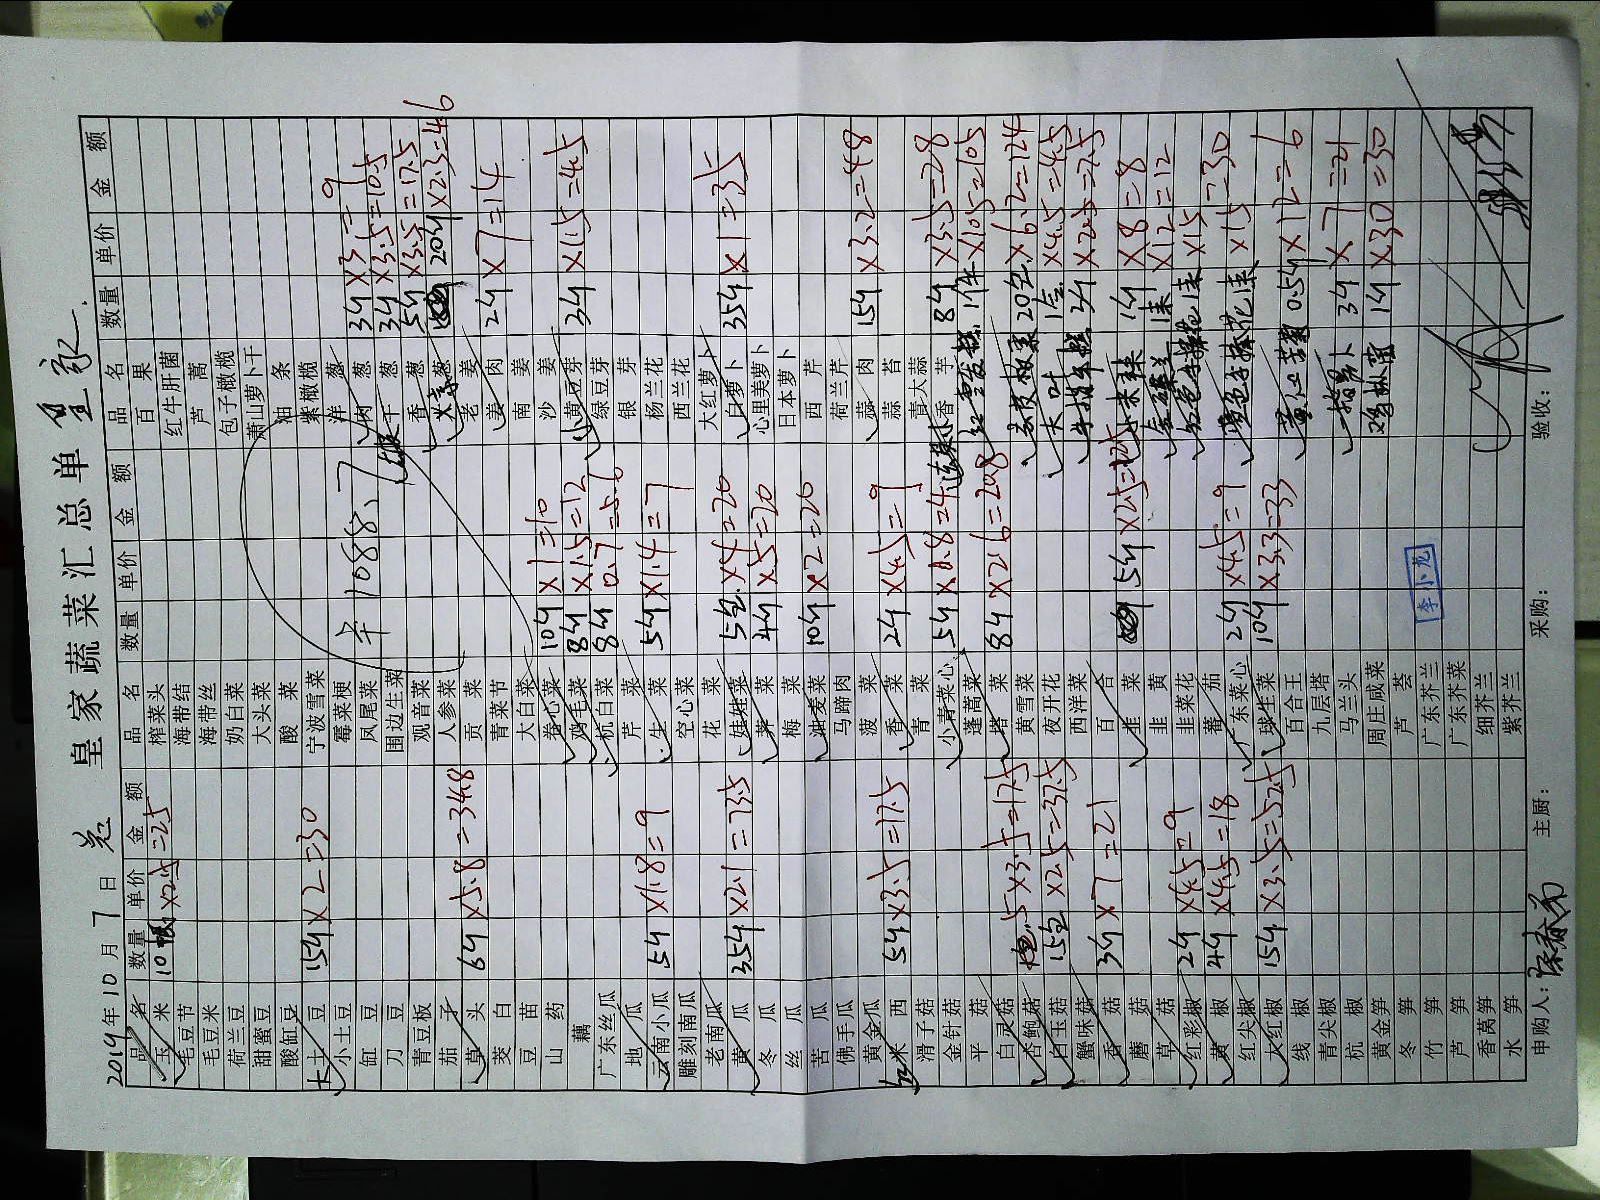 皇家蔬菜汇总单 皇家
2014年10月7日
品名 数量 单价 金额 品名 数量 单价 金额 品名 数量 单价 金额
玉米 10根 ×2.5=25 榨菜头 百果
毛豆节 海带结 红牛肝菌
毛豆米 海带丝 芦蒿
荷兰豆 奶白菜 包子橄榄
甜蜜豆 大头菜 萧山萝卜干
酸缸豆 酸菜 油条
大土豆 15斤×2=30 宁波雪菜 紫橄榄
小土豆 霉菜梗 洋葱 3斤×3=9
缸豆 凤尾菜 1088.7 肉葱 3斤×3.5=10.5
刀豆 围边生菜 干葱 5斤×3.5=17.5
青豆板 观音菜 香葱 20斤×2.3=46
茄子 人参菜 大京葱
草头 6斤×5.8=34.8 贡菜 老姜
茭白 青菜节 姜肉 2斤×7=14
豆苗 大白菜 南姜
山药 卷心菜 10斤×1=10 沙姜
藕 鸡毛菜 8斤×1.5=12 小黄豆芽 3斤×1.5=4.5
广东丝瓜 杭白菜 8斤 0.7=5.6 绿豆芽
地瓜 芹菜 银芽
云南小瓜 5斤×1.8=9 生菜 5斤×1.4=7 杨兰花
雕刻南瓜 空心菜 西兰花
老南瓜 花菜 大红萝卜
黄瓜 35斤×2.1=73.5 娃娃菜 5包×4=20 白萝卜 35斤×1=35
冬瓜 荠菜 4斤×5=20 心里美萝卜
丝瓜 梅菜 日本萝卜
苦瓜 油麦菜 10斤×2=20 西芹
佛手瓜 马蹄肉 荷兰芹
黄金瓜 菠菜 蒜肉 15斤×3.2=48
红米西 5斤×3.5=17.5 香菜 2斤×4.5=9 蒜苔
滑子菇 青菜 青大蒜
金针菇 小青菜心 5斤×0.8=4 香芋 8斤×3.5=28
平菇 蓬蒿菜 1件×105=105
白灵菇 塔菜 8斤×2.6=20.8
杏鲍菇 5×3.5=17.5 黄雪菜 20包×6.2=124
白玉菇 15包×2.5=37.5 夜开花 大叶 ×4.5=4.5
蟹味菇 西洋菜 3斤×2.5=7.5
香菇 3斤×7=21 百合
蘑菇 韭菜 5斤×2.5=12.5 1斤×8=8
草菇 韭黄 ×12=12
红彩椒 2斤×4.5=9 韭菜花 ×15
黄椒 4斤×4.5=18 番茄 ×15=30
红尖椒 广东菜心 2斤×4.5=9
大红椒 15斤×3.5=52.5 球生菜 10斤×3.3=33 0.5斤×12=6
线椒 百合王
青尖椒 九层塔 3斤×7=21
杭椒 马兰头 1斤×30=30
黄金笋 周庄咸菜
冬笋 芦荟
竹笋 广东芥兰 李小龙
芦笋 广东芥菜
香莴笋 细芥兰
水笋 紫芥兰
申购人: 主厨: 采购: 验收: